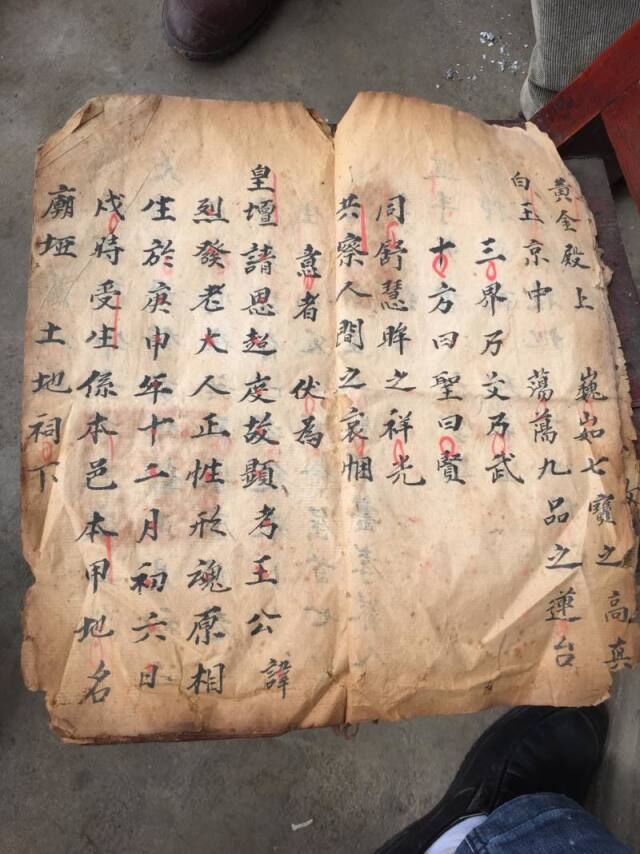 黃金殿上 巍如七寶之高真
白玉京中 蕩蕩九品之蓮台
三界乃文乃武
十方曰聖曰賢
同舒慧眸之祥光
共察人間之哀悃
意者 伏為
皇壇請恩超度故顯考王公諱
烈發老大人正性形魂原相
生於庚申年十二月初六日
戌時受生係本邑本甲地名
廟埡 土地祠下